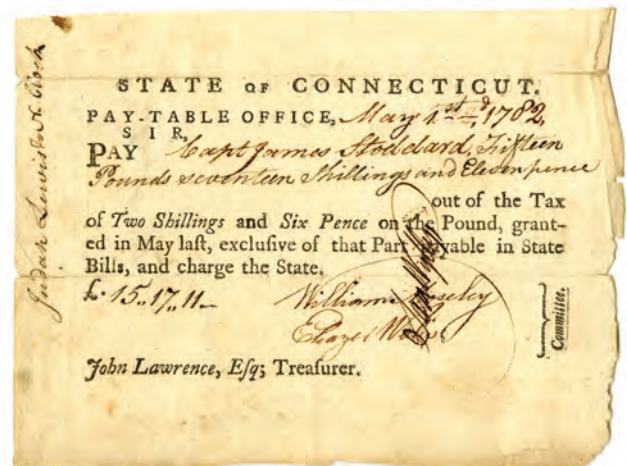 STATE OF CONNECTICUT.
PAY-TABLE OFFICE, May 1st d, 1782,
SIR,
PAY Capt James Stoddard, Fifteen
Pounds seventeen Shillings and Eleven pence
out of the Tax
of Two Shillings and Six Pence on the Pound, grant-
ed in May laſt, excluſive of that Part payable in State
Bills, and charge the State.
£. 15..17..11
William Moseley
Eleazer
Committee.
John Lawrence, Eſq; Treaſurer.
Judah Lewis